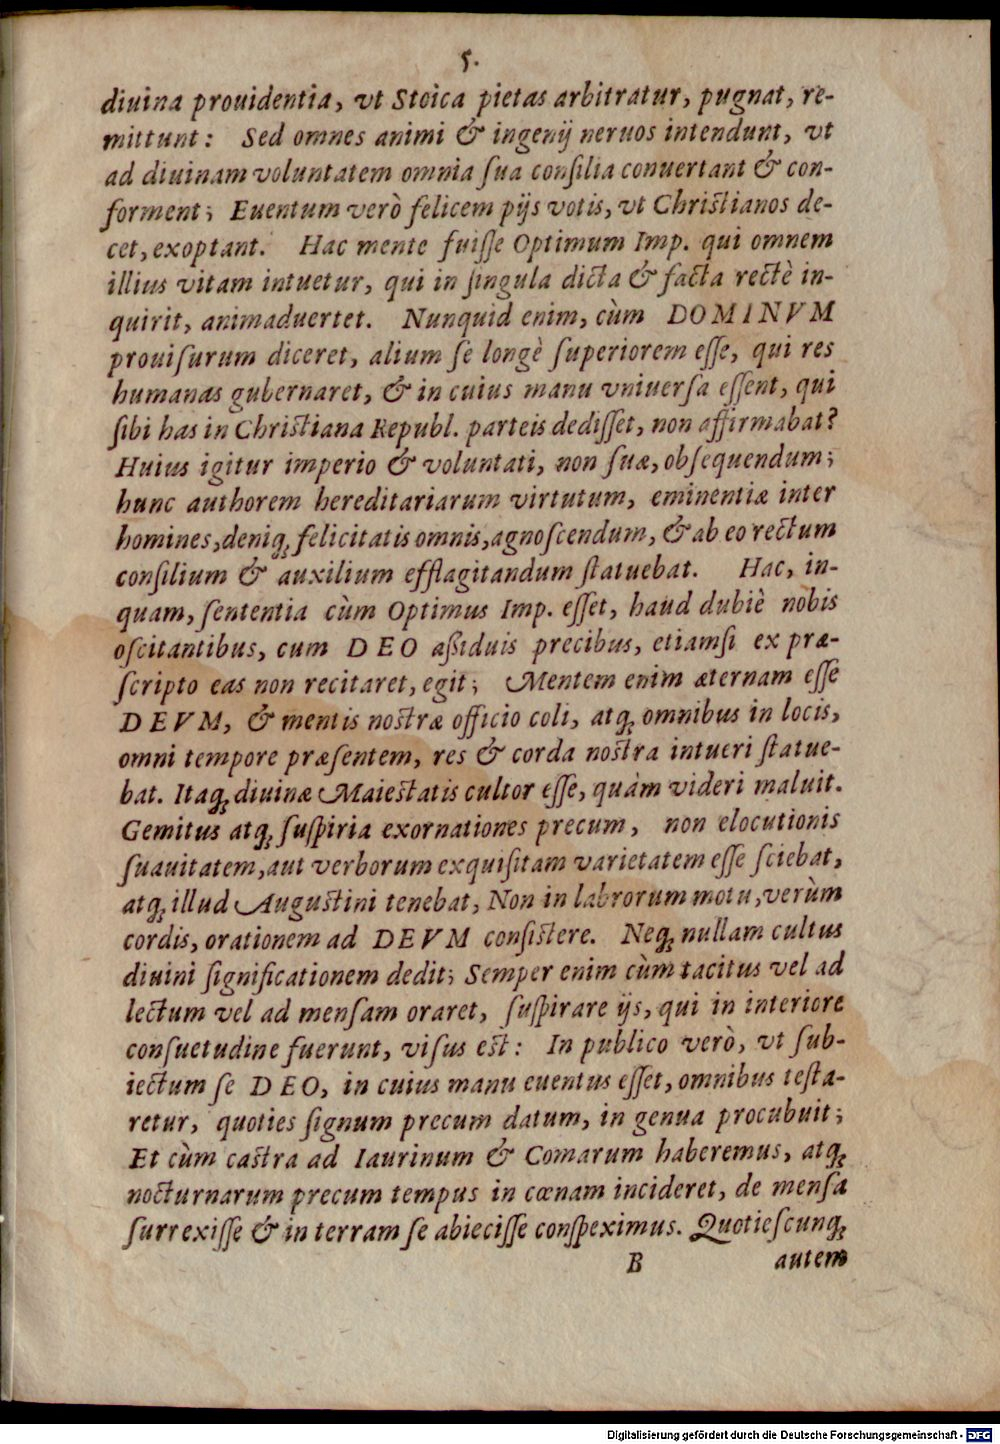 5.
diuina prouidentia, vt Stoica pietas arbitratur, pugnat, re-
mittunt: Sed omnes animi & ingenij neruos intendunt, vt
ad diuinam voluntatem omnia ſua conſilia conuertant & con-
forment; Euentum verò felicem pijs votis, vt Chriſtianos de-
cet, exoptant. Hac mente fuiſſe Optimum Imp. qui omnem
illius vitam intuetur, qui in ſingula dicta & facta rectè in-
quirit, animaduertet. Nunquid enim, cùm DOMINVM
prouiſurum diceret, alium ſe longè ſuperiorem eſſe, qui res
humanas gubernaret, & in cuius manu vniuerſa eſſent, qui
ſibi has in Chriſtiana Republ. parteis dediſſet, non affirmabat?
Huius igitur imperio & voluntati, non ſuæ, obſequendum;
hunc authorem hereditariarum virtutum, eminentiæ inter
homines, deniq; felicitatis omnis, agnoſcendum, & ab eo rectum
conſilium & auxilium efflagitandum ſtatuebat. Hac, in-
quam, ſententia cùm Optimus Imp. eſſet, haud dubiè nobis
oſcitantibus, cum DEO aßiduis precibus, etiamſi ex præ-
ſcripto eas non recitaret, egit; Mentem enim æternam eſſe
DEVM, & mentis noſtræ officio coli, atq; omnibus in locis,
omni tempore præſentem, res & corda noſtra intueri ſtatue-
bat. Itaq; diuinæ Maieſtatis cultor eſſe, quàm videri maluit.
Gemitus atq; ſuſpiria exornationes precum, non elocutionis
ſuauitatem, aut verborum exquiſitam varietatem eſſe ſciebat,
atq; illud Auguſtini tenebat, Non in labrorum motu, verùm
cordis, orationem ad DEVM conſiſtere. Neq; nullam cultus
diuini ſignificationem dedit; Semper enim cùm tacitus vel ad
lectum vel ad menſam oraret, ſuſpirare ijs, qui in interiore
conſuetudine fuerunt, viſus eſt: In publico verò, vt ſub-
iectum ſe DEO, in cuius manu euentus eſſet, omnibus teſta-
retur, quoties ſignum precum datum, in genua procubuit;
Et cùm caſtra ad Iaurinum & Comarum haberemus, atq;
nocturnarum precum tempus in cœnam incideret, de menſa
ſurrexiſſe & in terram ſe abieciſſe conſpeximus. Quotieſcunq;
B autem
Digitalisierung gefördert durch die Deutsche Forschungsgemeinschaft - DFG